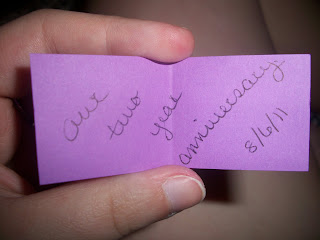 our two year anniversary
8/6/11